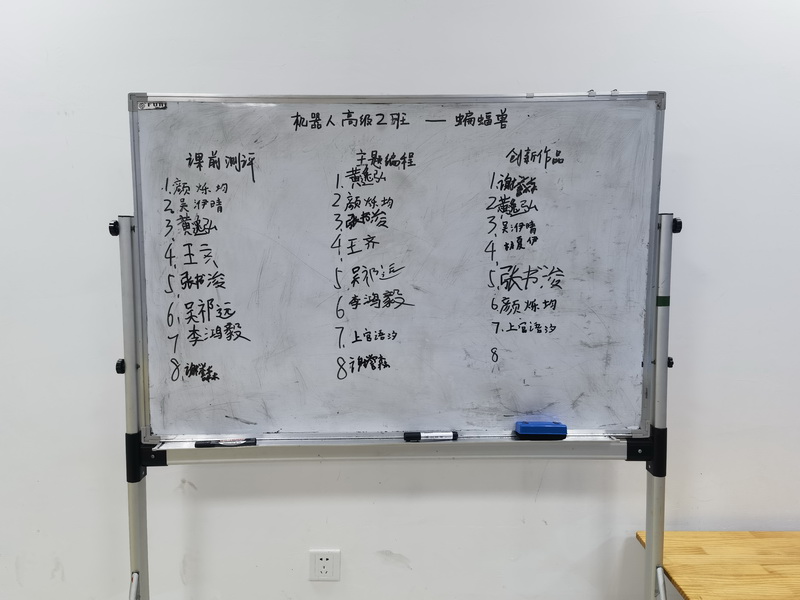 机器人高级2班 — 蝙蝠兽
课前测评
1. 颜烁均
2. 吴洢晴
3. 黄逸弘
4. 王齐
5. 张书浚
6. 吴祁远
7. 李鸿毅
8.
主题编程
1. 黄逸弘
2. 颜烁均
3. 张书浚
4. 王齐
5. 吴祁远
6. 李鸿毅
7. 上官语汐
8
创新作品
1.
2. 黄逸弘
3. 吴洢晴
4. 胡夏伊
5. 张书浚
6. 颜烁均
7. 上官语汐
8